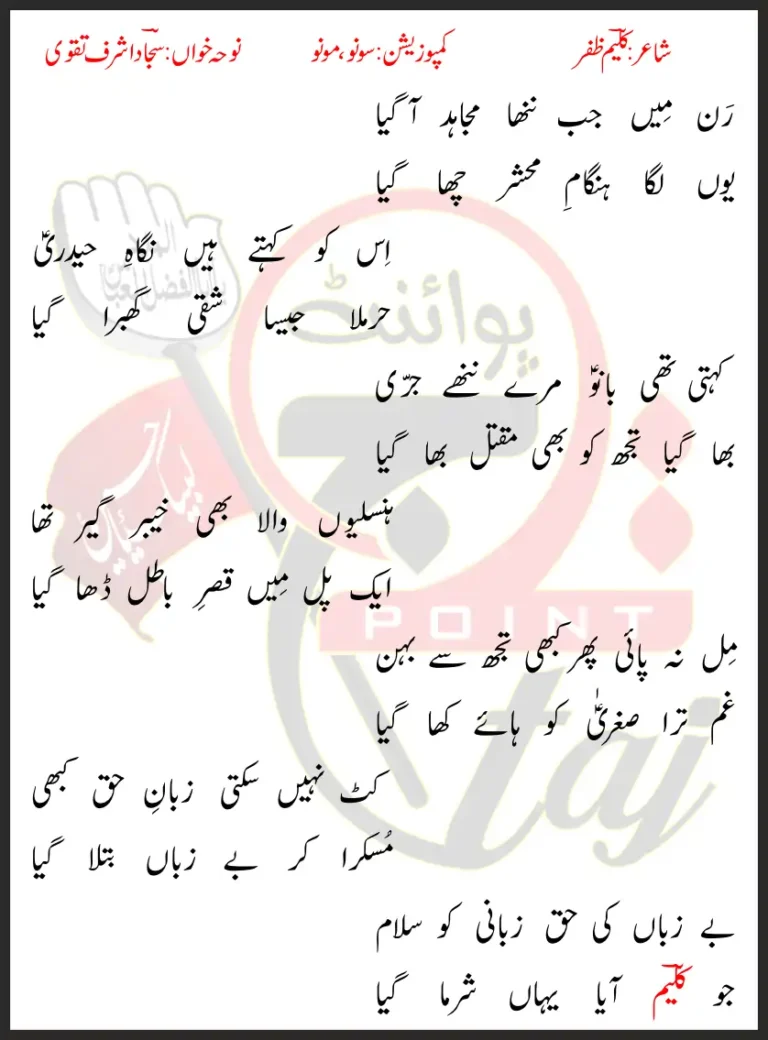 شاعر: کلیم ظفر کمپوزیشن: سونو، مونو نوحہ خواں: سجاد اشرف نقوی
رَن مِیں جب ننھا مجاہد آ گیا
یوں لگا ہنگامِ محشر چھا گیا
اِس کو کہتے ہیں نگاہِ حیدریؑ
حرملا جیسا شقی گھبرا گیا
کہتی تھی بانوؑ مرے ننھے جرّی
بھا گیا تجھ کو بھی مقتل بھا گیا
ہنسلیوں والا بھی خیبر گیر تھا
ایک پل مِیں قصرِ باطل ڈھا گیا
مِل نہ پائی پھر کبھی تجھ سے بہن
غم ترا صغریٰؑ کو ہائے کھا گیا
کٹ نہیں سکتی زبانِ حق کبھی
مُسکرا کر بے زباں بتلا گیا
بے زباں کی حق زبانی کو سلام
جو کلیم آیا یہاں شرما گیا
پوائنٹ
POINT
taj